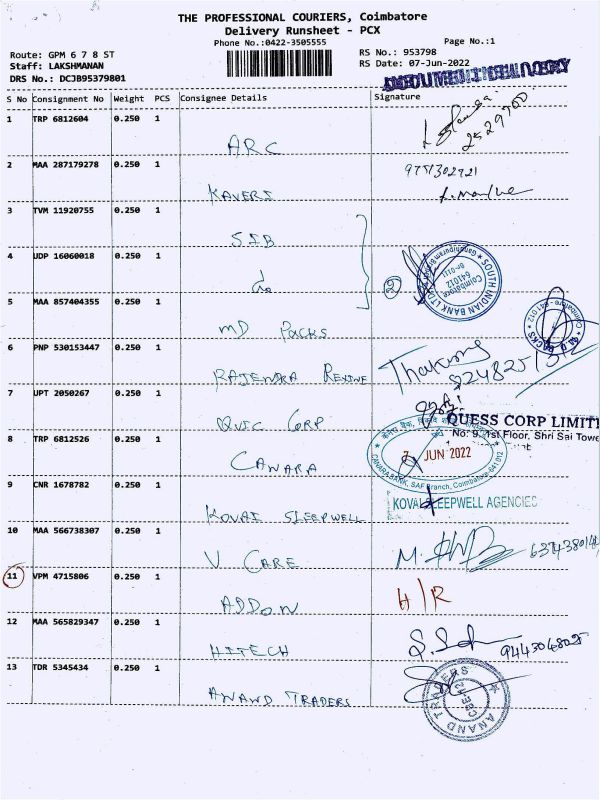 THE PROFESSIONAL COURIERS, Coimbatore
Delivery Runsheet - PCX
Phone No.:0422-3505555
Page No.:1
Route: GPM 6 7 8 ST
RS No.: 953798
Staff: LAKSHMANAN
RS Date: 07-Jun-2022
DRS No.: DCJB95379801
S No Consignment No Weight PCS Consignee Details Signature
1 TRP 6812604 0.250 1
ARC
2529700
2 MAA 287179278 0.250 1
9751302921
KAVERI
3 TVM 11920755 0.250 1
SIB
4 UDP 16060018 0.250 1
do
2
SOUTH INDIAN BANK LTD
Gandhipuram
Coimbatore
641012
5 MAA 857404355 0.250 1
MD PACKS
Coimbatore - 641 012
PACKS
6 PNP 530153447 0.250 1
RAJENDRA
7 UPT 2050267 0.250 1
QUIC CORP
QUESS CORP LIMIT
No: 9, 1st Floor, Shri Sai Towe
8 TRP 6812526 0.250 1
CANARA
7 JUN 2022
CANARA BANK, SAF Branch, Coimbatore-641 012
9 CNR 1678782 0.250 1
KOVAI SLEEPWELL AGENCIES
KOVAI SLEEPWELL
10 MAA 566738307 0.250 1
V CARE
11 VPM 4715806 0.250 1
ADDON
H/R
12 MAA 565829347 0.250 1
HITECH
9443068025
13 TDR 5345434 0.250 1
ANAND TRADERS
ANAND TRADERS
CBE-12